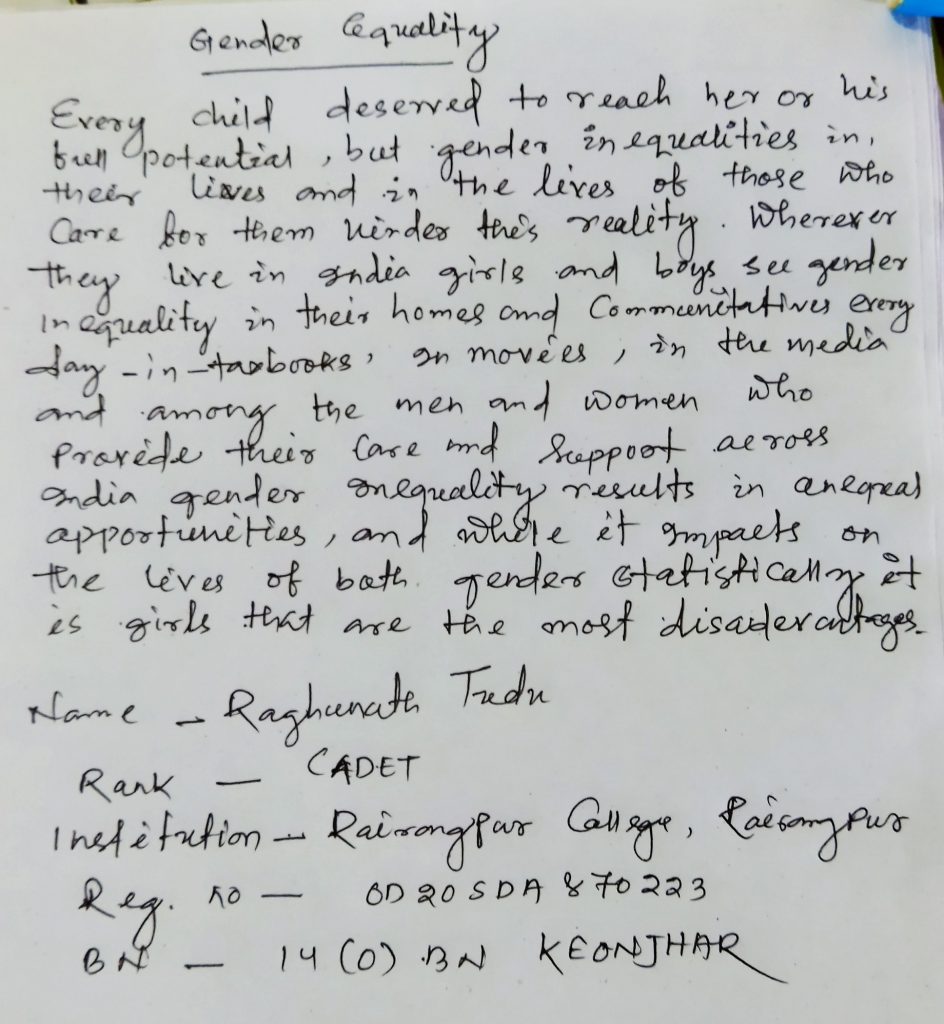 Gender Equality
Every child deserved to reach her or his
full potential, but gender inequalities in,
their lives and in the lives of those who
Care for them hinder this reality. Wherever
they live in india girls and boys see gender
inequality in their homes and Communitatives every
day - in - taxbooks, in movies, in the media
and among the men and women who
Provide their Care and Support across
india gender inequality results in unequal
apportunities, and while it impacts on
the lives of both gender Statistically it
is girls that are the most disadevantages.
Name - Raghunath Tudu
Rank - CADET
Institution - Rairangpur College, Rairangpur
Reg. no - OD20SDA870223
BN - 14 (O) BN KEONJHAR